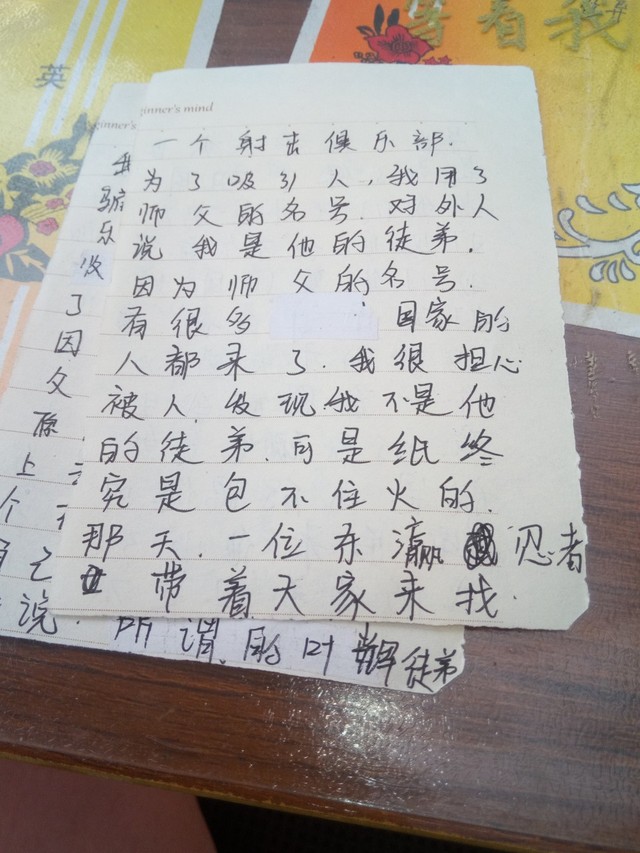 等着我
英
ginner's mind
一个射击俱乐部.
为了吸引人,我用了
师父的名号.对外人
说我是他的徒弟.
因为师父的名号.
有很多 国家的
人都来了.我很担心
被人发现我不是他
的徒弟.可是纸终
究是包不住火的.
那天.一位东瀛忍者
带着天家来找.
ginner's
乐
收
了
因
父
原
上
个
己
说.所谓的叶 徒弟